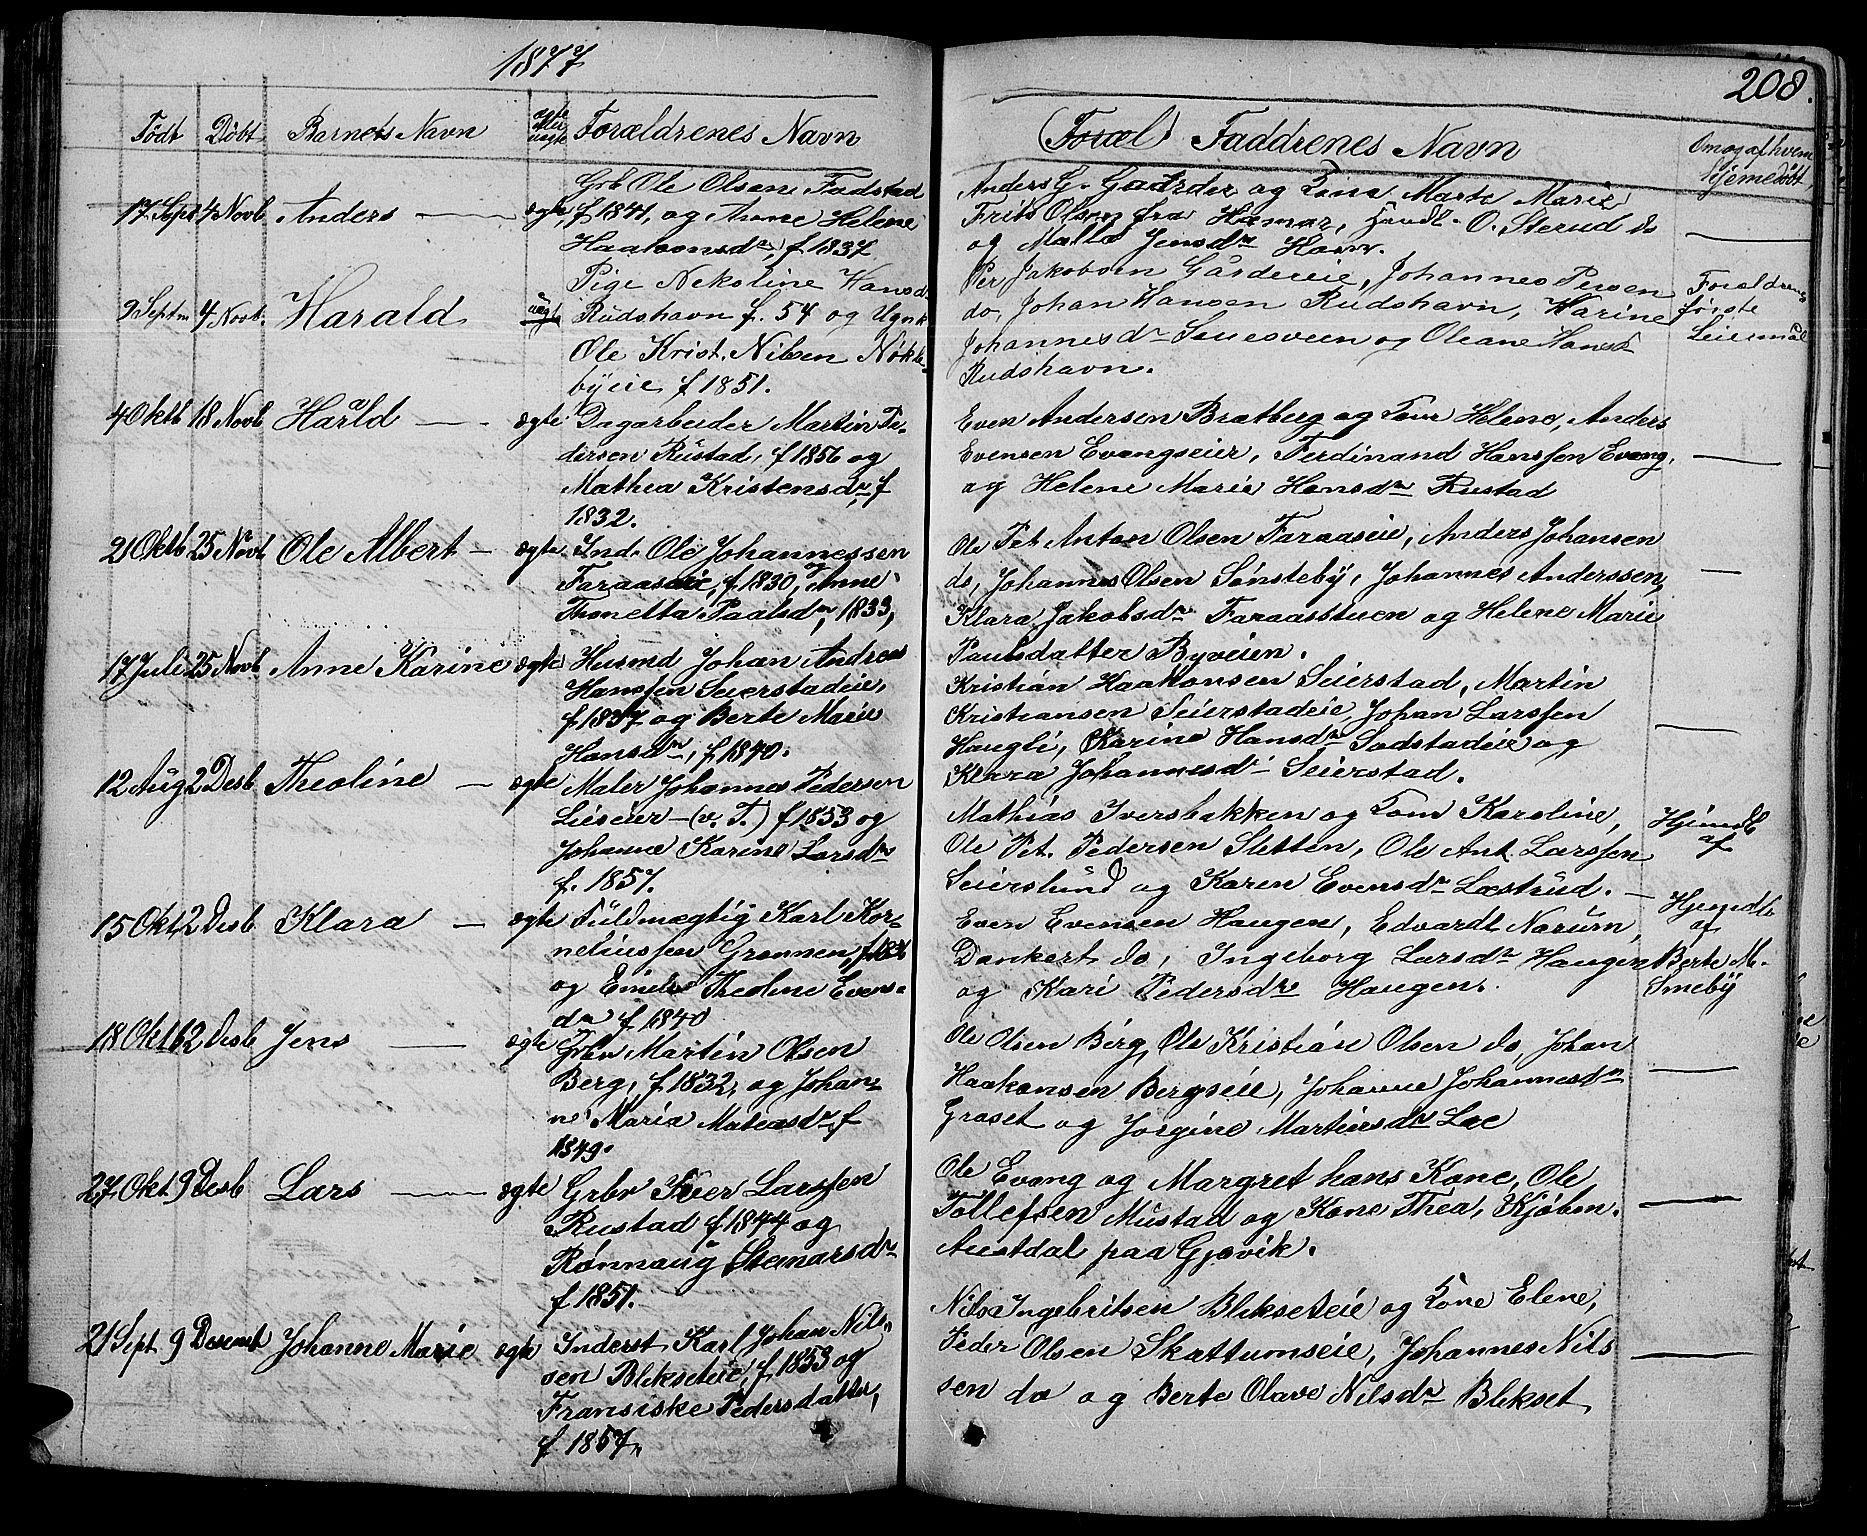 1877
208.
Født Døbt Barnets Navn ægte eller uægte Forældrenes Navn
(Foræl) Faddrenes Navn
Om og af hvem hjemedøbt
17 Sept 4 Novb Anders — ægte
Grb Ole Olsen Fadstad
f 1841, og Anne Helene
Haakonsdr, f 1837
Anders G. Gaarder og Marte Marie
Frits Olsen fra Hamar, O. Sterud do
og Jensdr
9 Septm 4 Novb. Harald uægt
Pige Nekoline Hansd
Rudshavn f. 54 og Ugnk
Ole Krist. Nilsen Nøkle-
byeie f 1851.
Per Jakobsen Gårdereie, Johannes Persen
do, Johan Hansen Rudshavn, Karine
Johannesdr og Oleane Hansd
Rudshavn.
Forældrenes
første
Leiermål
4 Oktb 18 Novb Harald — ægte
Dagarbeider Martin Pe-
dersen Rustad, f 1856 og
Mathea Kristensdr, f
1832.
Even Andersen Bratberg og Kone Helene, Anders
Evensen Evangseier, Ferdinand Hanssen Evang,
og Helene Marie Hansdr Rustad
—
21 Oktb 25 Novb Ole Albert — ægte
Ind. Ole Johannessen
Faraaseie, f 1830, Anne
Thonetta Paalsdr, 1833,
Ole Pet. Anton Olsen Faraaseie, Anders Johansen
do, Johannes Olsen Sønsteby, Johannes Anderssen,
Klara Jakobsdr Faraasstuen og Helene Marie
Paulsdatter Byveien.
—
17 Juli 25 Novb Anne Karine ægte
Husmd Johan Andreas
Hanssen Seierstadeie,
f 1837 og Berte Marie
Hansdr, f 1840.
Kristian Haakonsen Seierstad, Martin
Kristiansen Seierstadeie, Johan Larssen
Haugli, Karine Hansdr Sodstadeie og
Klara Johannesdr Seierstad.
—
12 Aug 2 Desb Theoline — ægte
Maler Johannes Pedersen
Lieseier — (v. T.) f 1853 og
Johanne Karine Larsdr
f. 1857.
Mathias Iversbakken og Kone Karoline,
Ole Pet. Pedersen Sletten, Ole Ant. Larssen
Seierslund og Karen Evensdr Løstrud. —
Hjemdb
af
15 Okt 2 Desb Klara — ægte
Fuldmægtig Karl Kor-
neliussen Grønnen, f.
og Emilie Theoline Evens-
dr f 1840
Even Evensen Haugen, Edvardt Narum,
Dankert do, Ingeborg Larsdr Haugen
og Kari Pedersdr Haugen.
Hjemdb
af
Berte M.
Smeby
18 Okt 2 Desb Jens — ægte
Grbr Martin Olsen
Berg, f 1832, og Johan-
ne Maria Mateasdr, f
1849.
Ole Olsen Berg, Ole Kristian Olsen do, Johan
Haakonsen Bergseie, Johanne Johannesdr
Graset og Jørgine Martinsdr Lae
—
27 Okt 9 Desb Lars — ægte
Grbr Peder Larssen
Rustad f 1844 og
Rønnaug Stenarsdr
f 1851.
Ole Evang og Margret hans Kone, Ole
Tollefsen Mustad og Kone Thea, Kjøbm.
Austdal paa Gjøvik.
—
21 Sept 9 Desembt Johanne Marie ægte
Inderst Karl Johan Nils-
sen Blikseteie, f 1853 og
Fransiske Pedersdatter,
f 1857,
Nils Ingebritsen Blikseteie og Kone Elene,
Peder Olsen Skattumseie, Johannes Nils
sen do og Berte Olave Nilsdr Blekset
—